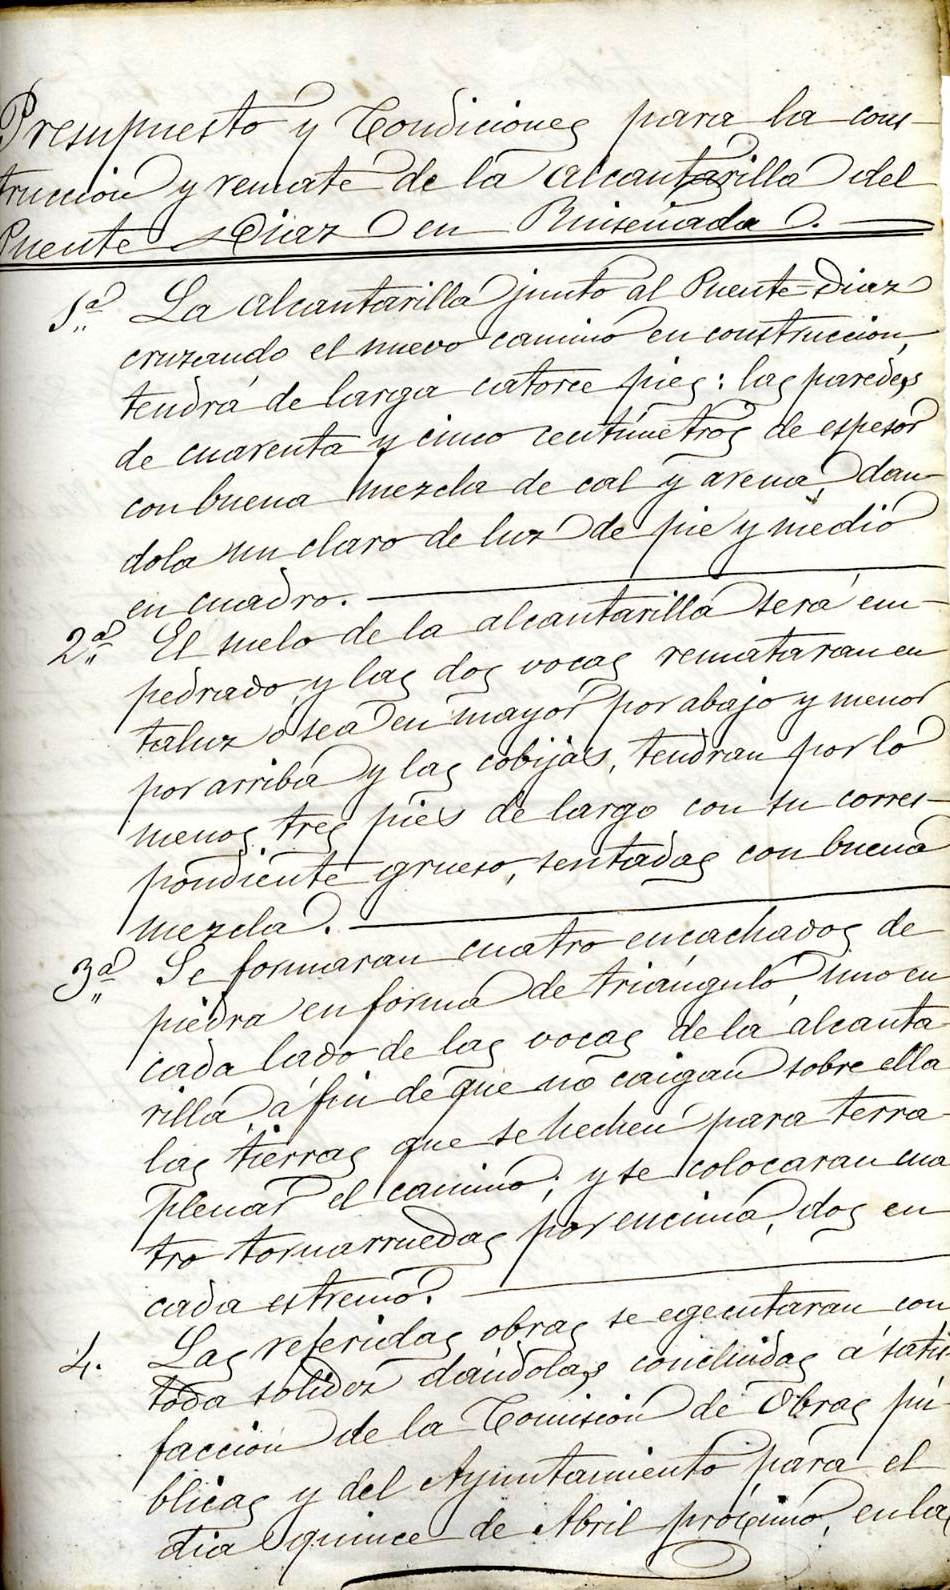 Presupuesto y Condiciones para la cons-
truccion y remate de la alcantarilla del
Puente Diaz en Ruiseñada.
1ª La alcantarilla junto al Puente-Diaz
cruzando el nuevo camino en construccion,
tendrá de larga catorce pies: las paredes
de cuarenta y cinco centímetros de espesor
con buena mezcla de cal y arena, dan-
dola un claro de luz de pie y medio
en cuadro.
2ª El suelo de la alcantarilla será em-
pedrado, y las dos vocas remataran en
taluz o sea en mayor por abajo y menor
por arriba y las cobijas, tendran por lo
menos tres pies de largo con su corres-
pondiente grueso, sentadas con buena
mezcla.
3ª Se formaran cuatro encachados de
piedra en forma de triángulo, uno en
cada lado de las vocas de la alcanta
rilla, á fin de que no caigan sobre ella
las tierras que se hechen para terra
plenar el camino; y se colocaran cua
tro tornarruedas por encima, dos en
cada estremo.
4. Las referidas obras se egecutaran con
toda solidez dándolas concluidas á satis
facción de la Comision de Obras pú-
blicas y del Ayuntamiento para el
dia quince de Abril próximo, en la